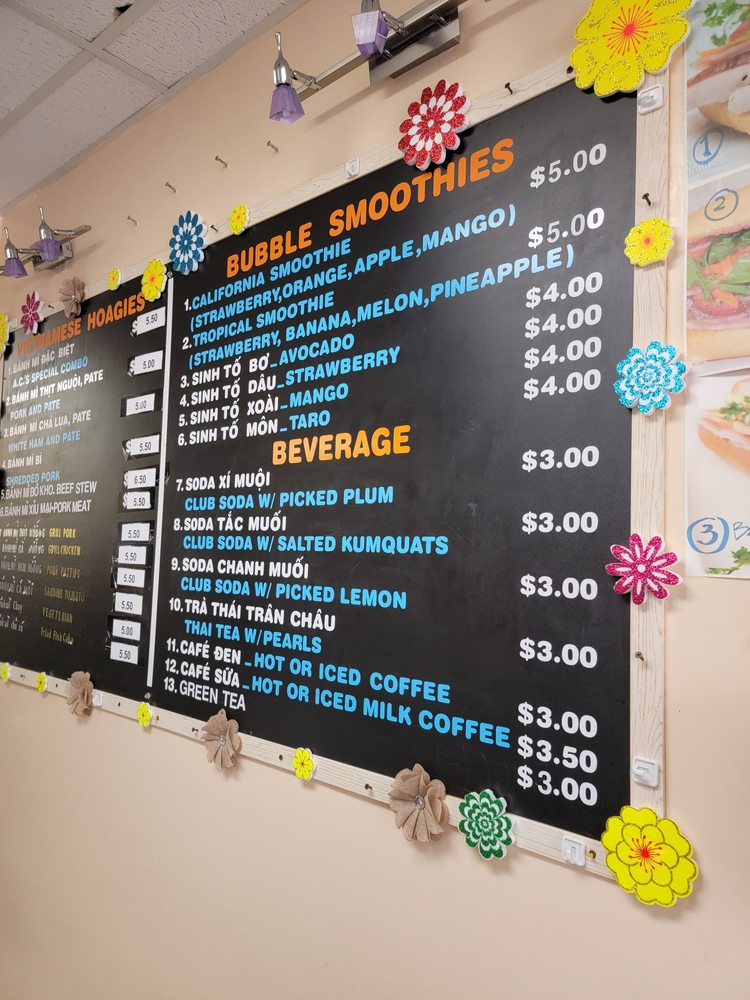 VIETNAMESE HOAGIES
1. BÁNH MÌ ĐẶC BIỆT
A.C.'S SPECIAL COMBO
$ 5.50
2. BÁNH MÌ THỊT NGUỘI, PATE
PORK AND PATE
$ 5.00
3. BÁNH MÌ CHẢ LUA, PATE
WHITE HAM AND PATE
5.00
4. BÁNH MÌ BÌ
SHREDDED PORK
$ 5.50
5. BÁNH MÌ BÒ KHO. BEEF STEW
$ 6.50
6. BÁNH MÌ XÍU MẠI-PORK MEAT
$ 5.50
GRILL PORK
5.50
GRILL CHICKEN
5.50
PORK PATTIES
5.50
SARDINE TOMATO
5.50
VEGETARIAN
5.00
Fried Fish Cake
5.50
BUBBLE SMOOTHIES
1. CALIFORNIA SMOOTHIE $5.00
(STRAWBERRY,ORANGE,APPLE,MANGO)
2. TROPICAL SMOOTHIE $5.00
(STRAWBERRY, BANANA,MELON,PINEAPPLE)
3. SINH TỐ BƠ_AVOCADO $4.00
4. SINH TỐ DÂU_STRAWBERRY $4.00
5. SINH TỐ XOÀI_MANGO $4.00
6. SINH TỐ MÔN_TARO $4.00
BEVERAGE
7. SODA XÍ MUỘI $3.00
CLUB SODA W/ PICKED PLUM
8. SODA TẮC MUỐI $3.00
CLUB SODA W/ SALTED KUMQUATS
9. SODA CHANH MUỐI $3.00
CLUB SODA W/ PICKED LEMON
10. TRÀ THÁI TRÂN CHÂU $3.00
THAI TEA W/PEARLS
11. CAFÉ ĐEN_HOT OR ICED COFFEE $3.00
12. CAFÉ SỮA_HOT OR ICED MILK COFFEE $3.50
13. GREEN TEA $3.00
1
2
3